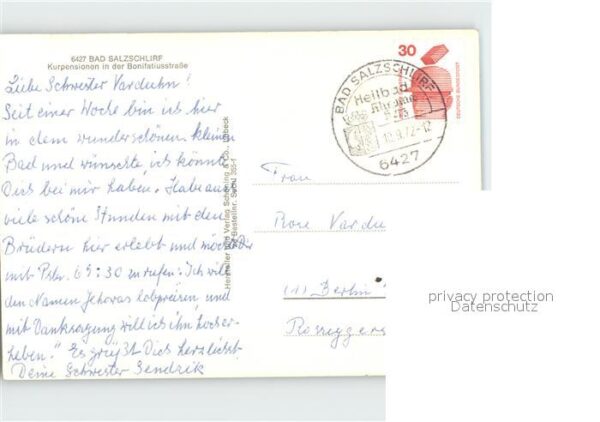 6427 BAD SALZSCHLIRF
Kurpensionen in der Bonifatiusstraße
Liebe Schwester Varduhn!
Seit einer Woche bin ich hier
in dem wunderschönen kleinen
Bad und wünschte, ich könnte
Dich bei mir haben. Habe auch
viele schöne Stunden mit den
Brüdern hier erlebt und möchte Dir
mit Pslm. 69:30 zurufen: „Ich will
den Namen Jehovas lobpreisen, und
mit Danksagung will ich ihn hocher-
heben." Es grüßt Dich herzlichst
Deine Schwester Sendzik
Hersteller und Verlag Schöning & Co., Lübeck
Bestellnr.
BAD SALZSCHLIRF
Heilbad
12.9.72-12
6427
30
DEUTSCHE BUNDESPOST
Frau
Rose Vardu
(1) Berlin
Rosegger
privacy protection
Datenschutz